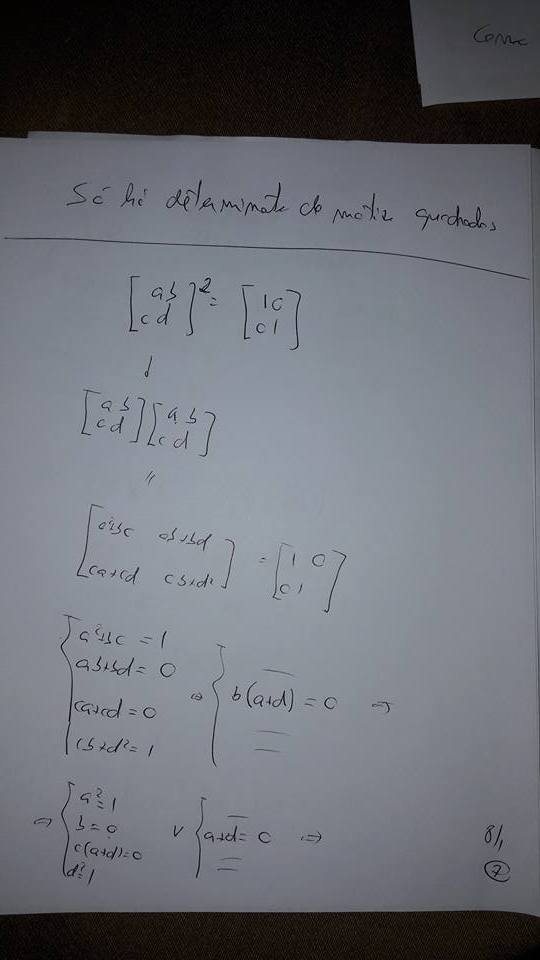 Só há determinante de matriz quadradas
[a b
c d]² = [1 0
0 1]
[a b
c d] [a b
c d]
"
[a²+bc ab+bd
ca+cd cb+d²] = [1 0
0 1]
{a²+bc = 1
ab+bd = 0
ca+cd = 0
cb+d² = 1
⇔ { —
b(a+d) = 0 ⇒
—
—
⇔ {a² = 1
b = 0
c(a+d) = 0
d² = 1
∨ { —
a+d = 0 ⇒
—
—
8/1
7